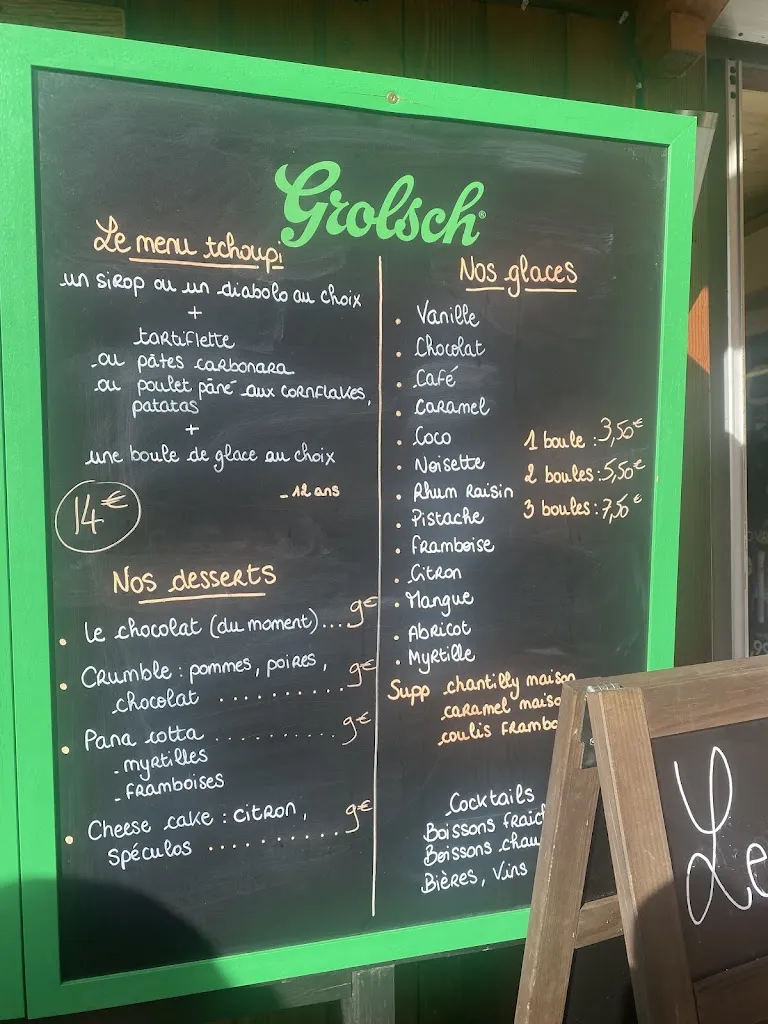 Grolsch
Le menu tchoupi
un sirop ou un diabolo au choix
+
tartiflette
ou pâtes carbonara
ou poulet pâné aux cornflakes,
patatas
+
une boule de glace au choix
- 12 ans
14€
Nos desserts
• Le chocolat (du moment)... 9€
• Crumble : pommes, poires,
chocolat .......... 9€
• Pana cotta .......... 9€
- myrtilles
- framboises
• Cheese cake : citron,
spéculos .......... 9€
Nos glaces
• Vanille
• Chocolat
• Café
• Caramel
• Coco
• Noisette
• Rhum Raisin
• Pistache
• Framboise
• Citron
• Mangue
• Abricot
• Myrtille
1 boule : 3,50€
2 boules : 5,50€
3 boules : 7,50€
Supp chantilly maison
caramel
coulis
Cocktails
Boissons
Boissons
Bières, Vins